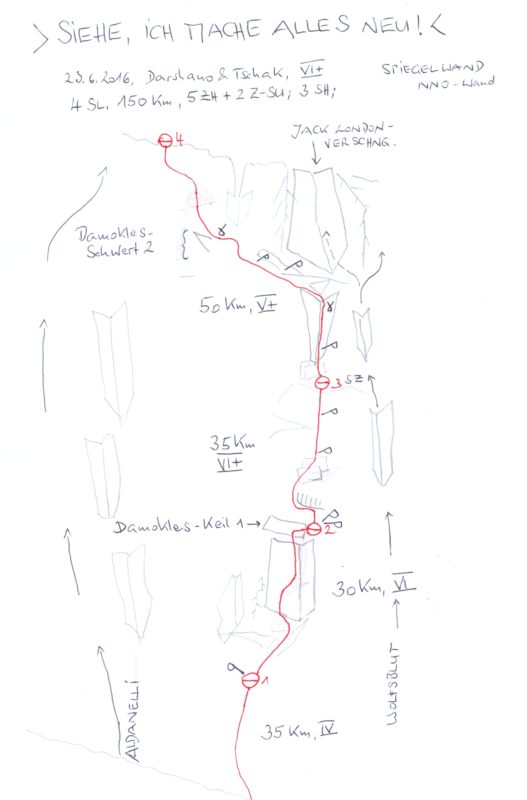 > SIEHE, ICH MACHE ALLES NEU! <
SPIEGELWAND
NNO-Wand
4 SL, 150 Km, 5 ZH + 2 Z-SU; 3 SH;
JACK LONDON-
VERSCHNG.
4
Damokles-
Schwert 2
50 Km, VI+
3 SZ
35 Km
VI+
Damokles-Keil 1
2
30 Km, VI
WOLFSBLUT
1
ALDANELLI
35 Km, IV